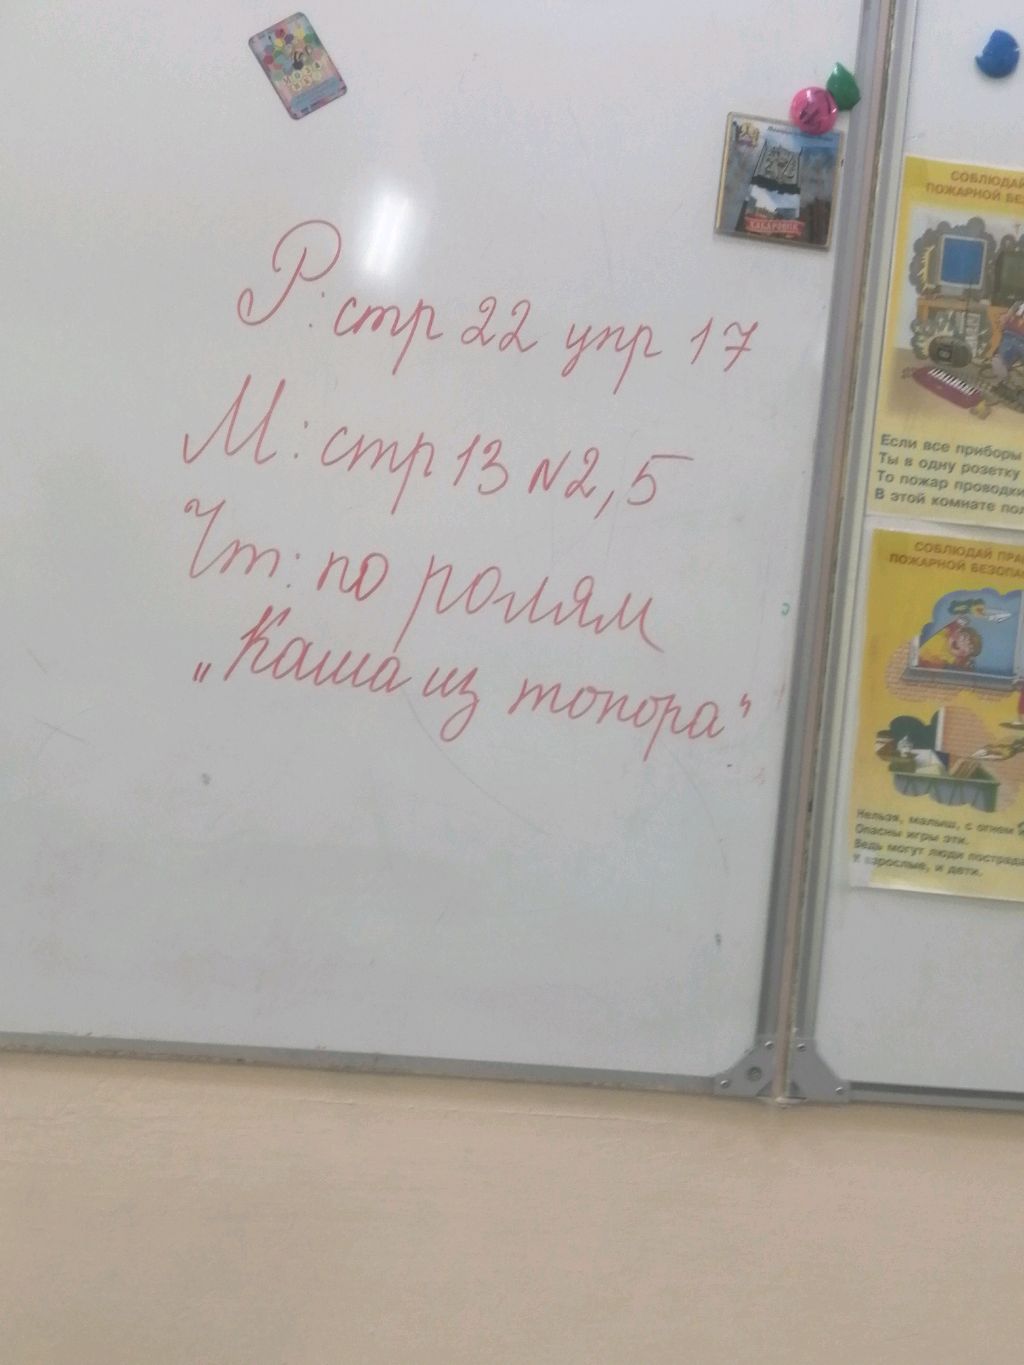 Р: стр 22 упр 17
М: стр 13 №2,5
Чт: по ролям
„Каша из топора“
ХАБАРОВСК
СОБЛЮДАЙ
ПОЖАРНОЙ
Если все приборы
Ты в одну розетку
То пожар проводки
В этой комнате
СОБЛЮДАЙ
ПОЖАРНОЙ
Нельзя, малыш, с огнем
Опасны игры эти.
Ведь могут люди
И взрослые, и дети.